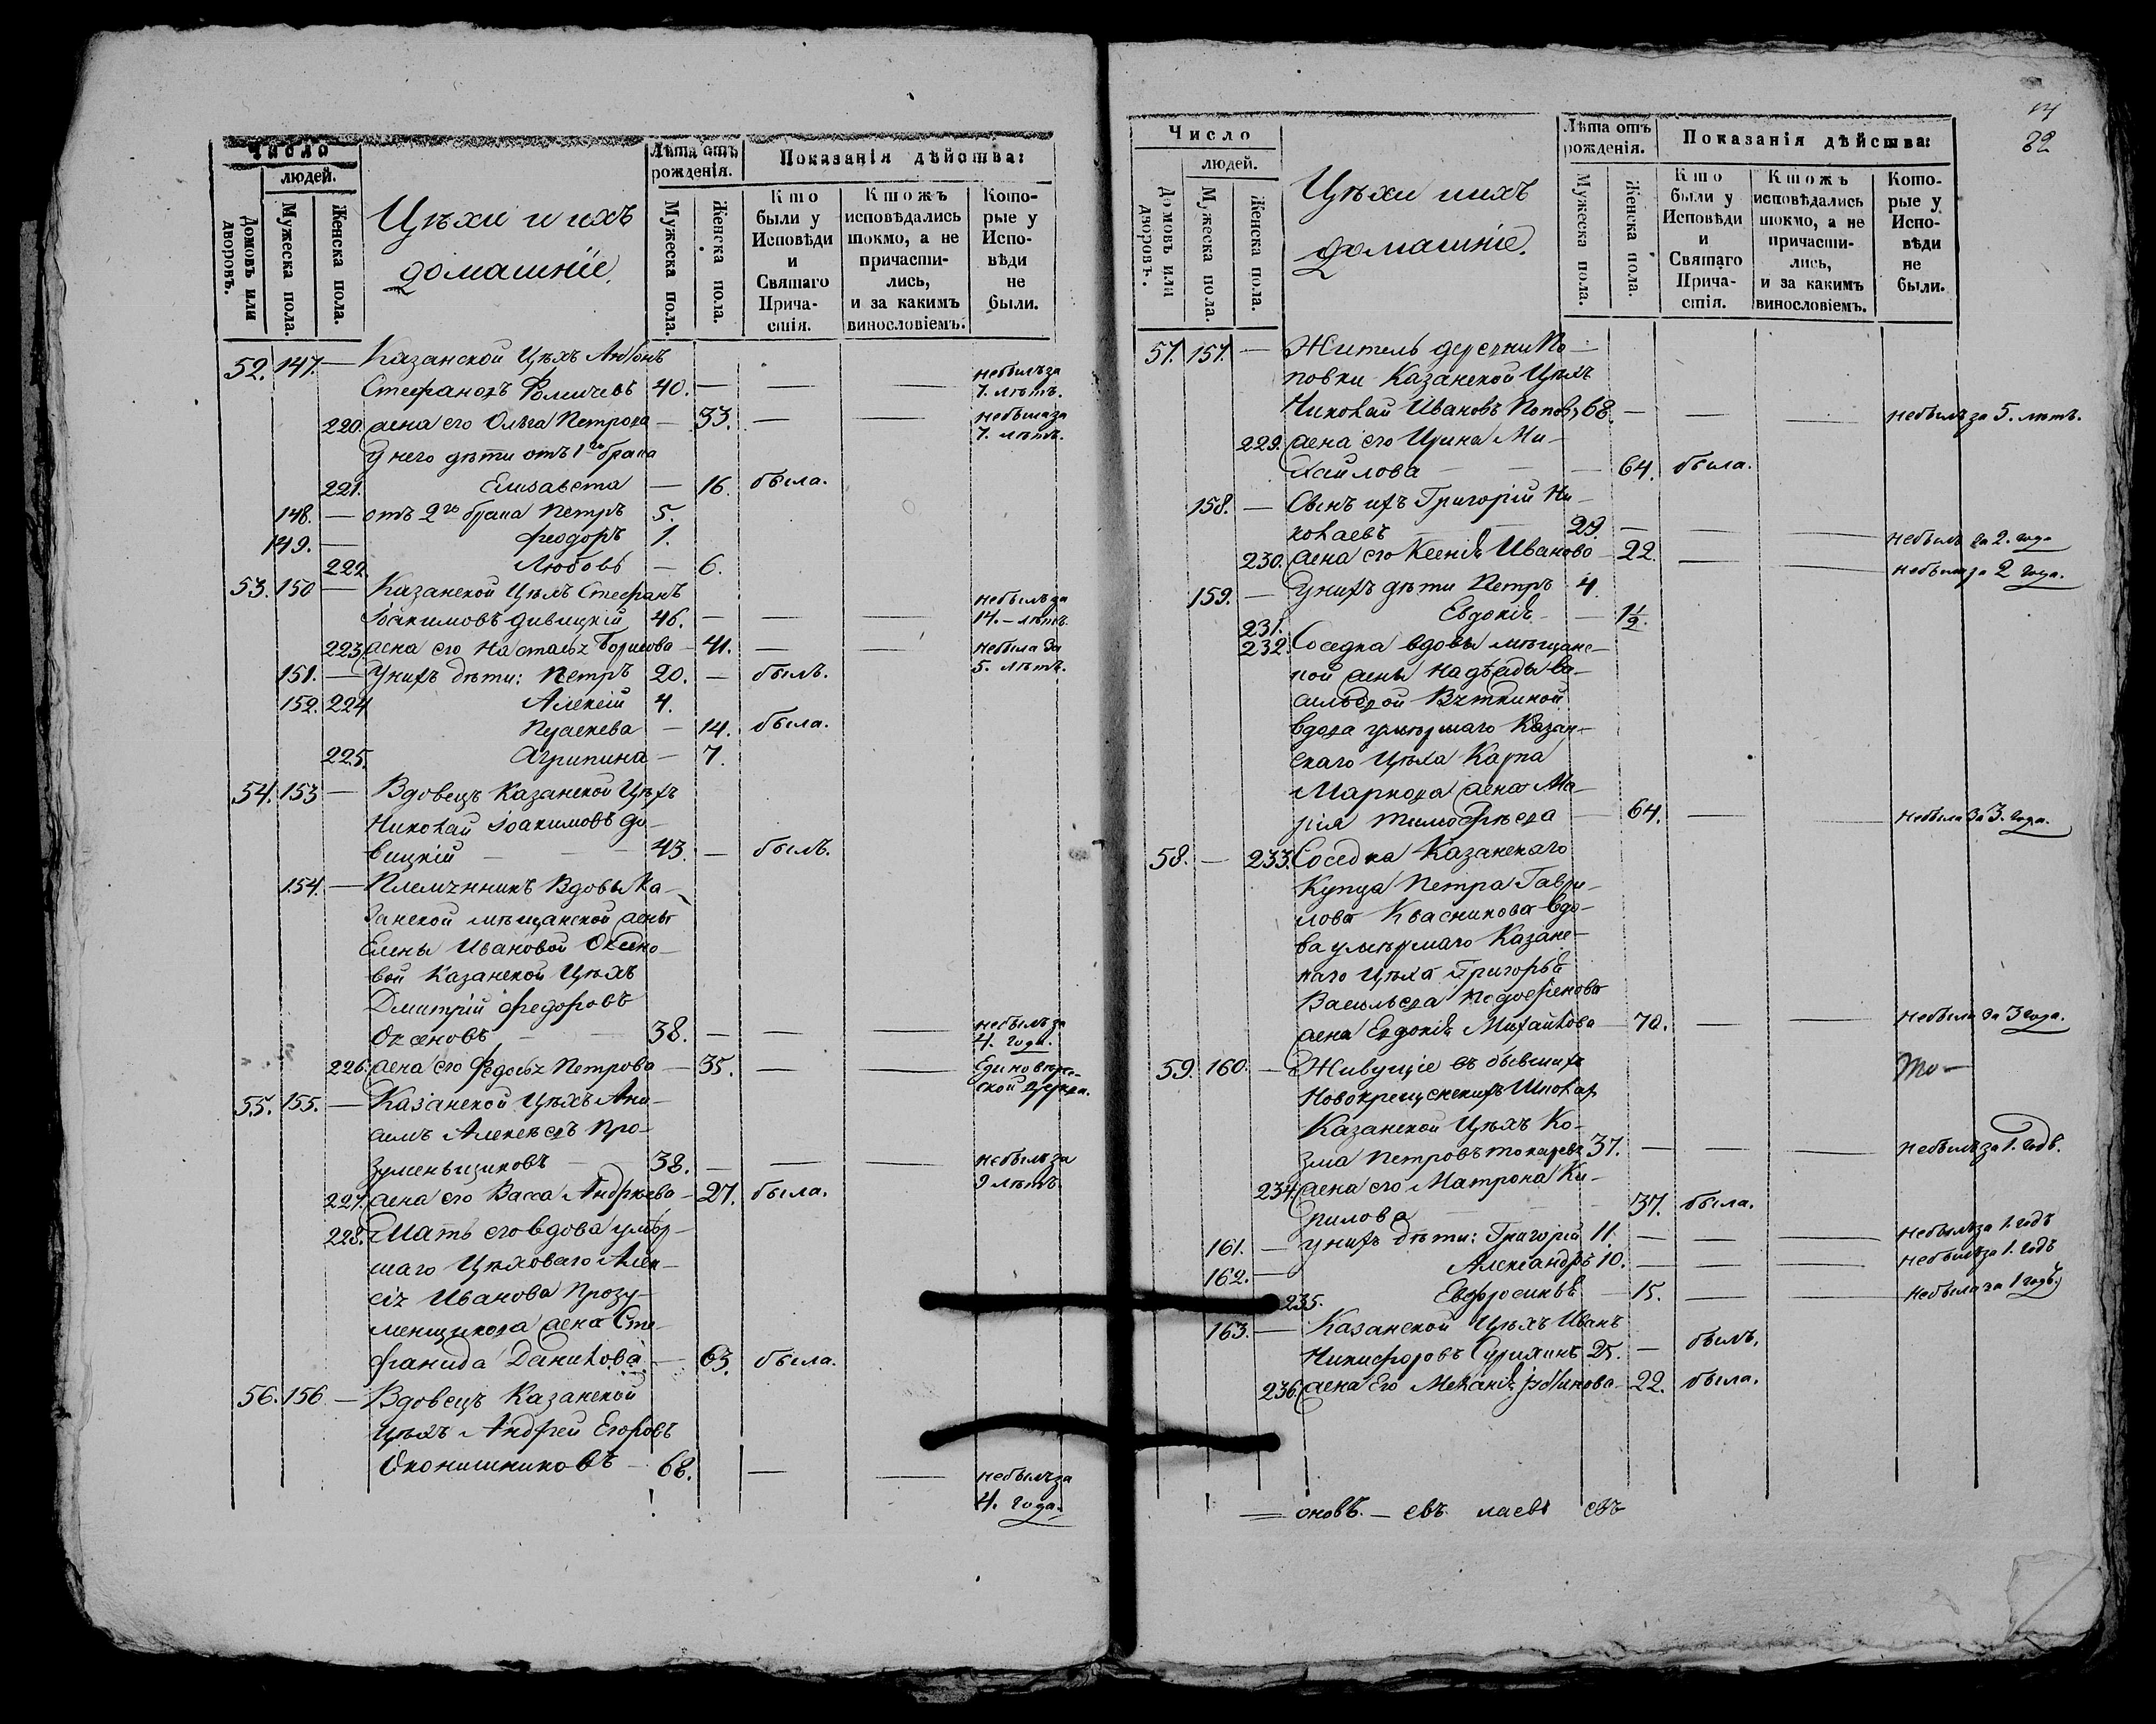 Число
людей.
Домовъ или дворовъ.
Мужеска пола.
Женска пола.
Цѣхи и ихъ
домашніе.
Лѣта отъ рожденія.
Мужеска пола.
Женска пола.
Показанія дѣйства:
Кто были у Исповѣди и Святаго Прича-стія.
Ктожъ исповѣдались токмо, а не причасти-лись, и за какимъ винословіемъ.
Кото-рые у Испо-вѣди не были.
52. 147. — Казанской Цѣхъ Антонъ
Стефановъ Фомичевъ 40. — — — небылъ за 7. лѣтъ.
220. жена его Ольга Петрова — 33. — — небыла за 7. лѣтъ.
У него дѣти отъ 1го брака
221. Елисавета — 16. была.
148. — отъ 2го брака Петръ 5.
149. — Феодоръ 1.
222. Любовь — 6.
53. 150 — Казанской Цѣхъ Стефанъ
Іоакимовъ Дивицкій 46. — — — небылъ за 14. — лѣтъ
223. жена его Настасья Борисова — 41. — — небыла за 5. лѣтъ.
151. — Унихъ дѣти: Петръ 20. — былъ.
152. 224 Алексій 4.
— 14. была.
225. Агрипина — 7.
54. 153 — Вдовецъ Казанской Цѣхъ
Николай Іоакимовъ Ди-
вицкій — — — 43. — былъ.
154. — Племянникъ Вдовы Ка-
занской мѣщанской жены
Елены Ивановой Оксено-
вой Казанской Цѣхъ
Дмитрій Федоровъ
Оксеновъ — — 38. — — — небылъ за 4. года.
226. жена его Федосья Петрова — 35. — — Единовѣрче-ской церкви.
55. 155. — Казанской Цѣхъ Ани-
симъ Алексѣевъ Про-
зуменьщиковъ — 38. — — — небылъ за 9 лѣтъ
227. жена его Васса Андреева — 27. была.
228. Мать его вдова умер-
шаго Цѣховаго Алек-
сія Иванова Прозу-
менщикова жена Сте-
фанида Данилова — 63. была.
56. 156 — Вдовецъ Казанской
цѣхъ Андрей Егоровъ
Оконишниковъ — 68. — — небылъ за
4. года.
14
82
Число
людей.
Домовъ или дворовъ.
Мужеска пола.
Женска пола.
Цѣхи иихъ
домашніе.
Лѣта отъ рожденія.
Мужеска пола.
Женска пола.
Показанія дѣйства:
Кто были у Исповѣди и Святаго Прича-стія.
Ктожъ исповѣдались токмо, а не причасти-лись, и за какимъ винословіемъ.
Кото-рые у Испо-вѣди не были.
57. 157. — Житель деревни По-
повки Казанской Цѣхъ
Николай Ивановъ Поповъ 68. — — — небылъ за 5. лѣтъ.
229. жена его Ирина Ми-
хайлова — — — 64. была.
158. — Сынъ ихъ Григорій Ни-
колаевъ — 29. — — — небылъ за 2. года
230. жена его Ксенія Иванова — 22. — — небыла за 2 года.
159. — Унихъ дѣти Петръ 4.
231. Евдокія — 1½.
232. Соседка вдовы мѣщанс-
кой жены Надежды Ва-
сильевой Вяткиной
вдова умершаго Казан-
скаго Цѣха Карпа
Маркова жена Ма-
рія Тимофѣева — 64. — — небыла за 3. года.
58. — 233. Соседка Казанскаго
Купца Петра Гаври-
лова Квасникова вдо-
ва умершаго Казанс-
каго Цѣха Григорья
Васильева
жена Евдокія Михайлова — 70. — — небыла за 3 года.
59. 160. — Живущіе въ бывшихъ
То —
Новокрещенскихъ Школах
Казанской Цѣхъ Ко-
зма Петровъ Токаревъ 37. — — — небылъ за 1. годъ.
234. жена его Матрона Ки-
рилова — — — 37. была.
161. — унихъ дѣти: Григорій 11. — — — небылъ за 1. годъ
162. — Александръ 10. — — — небылъ за 1. годъ
235. Евфросинья — 15. — — небыла за 1 годъ.
163. — Казанской Цѣхъ Иванъ
Никифоровъ 25. — былъ.
236. жена Его Меланія — 22. была.
= оновъ. — евъ лаевъ евъ